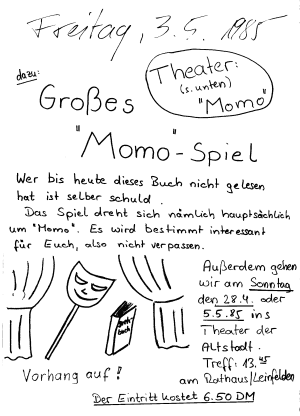 Freitag, 3.5.1985
dazu:
Theater:
(s. unten)
"Momo"
Großes
"Momo"-Spiel
Wer bis heute dieses Buch nicht gelesen
hat ist selber schuld.
Das Spiel dreht sich nämlich hauptsächlich
um "Momo". Es wird bestimmt interessant
für Euch, also nicht verpassen.
Außerdem gehen
wir am Sonntag
den 28.4. oder
5.5.85 ins
Theater der
Altstadt.
Treff: 13.45
am Rathaus/Leinfelden
Dreh-
buch
Vorhang auf!
Der Eintritt kostet 6.50 DM